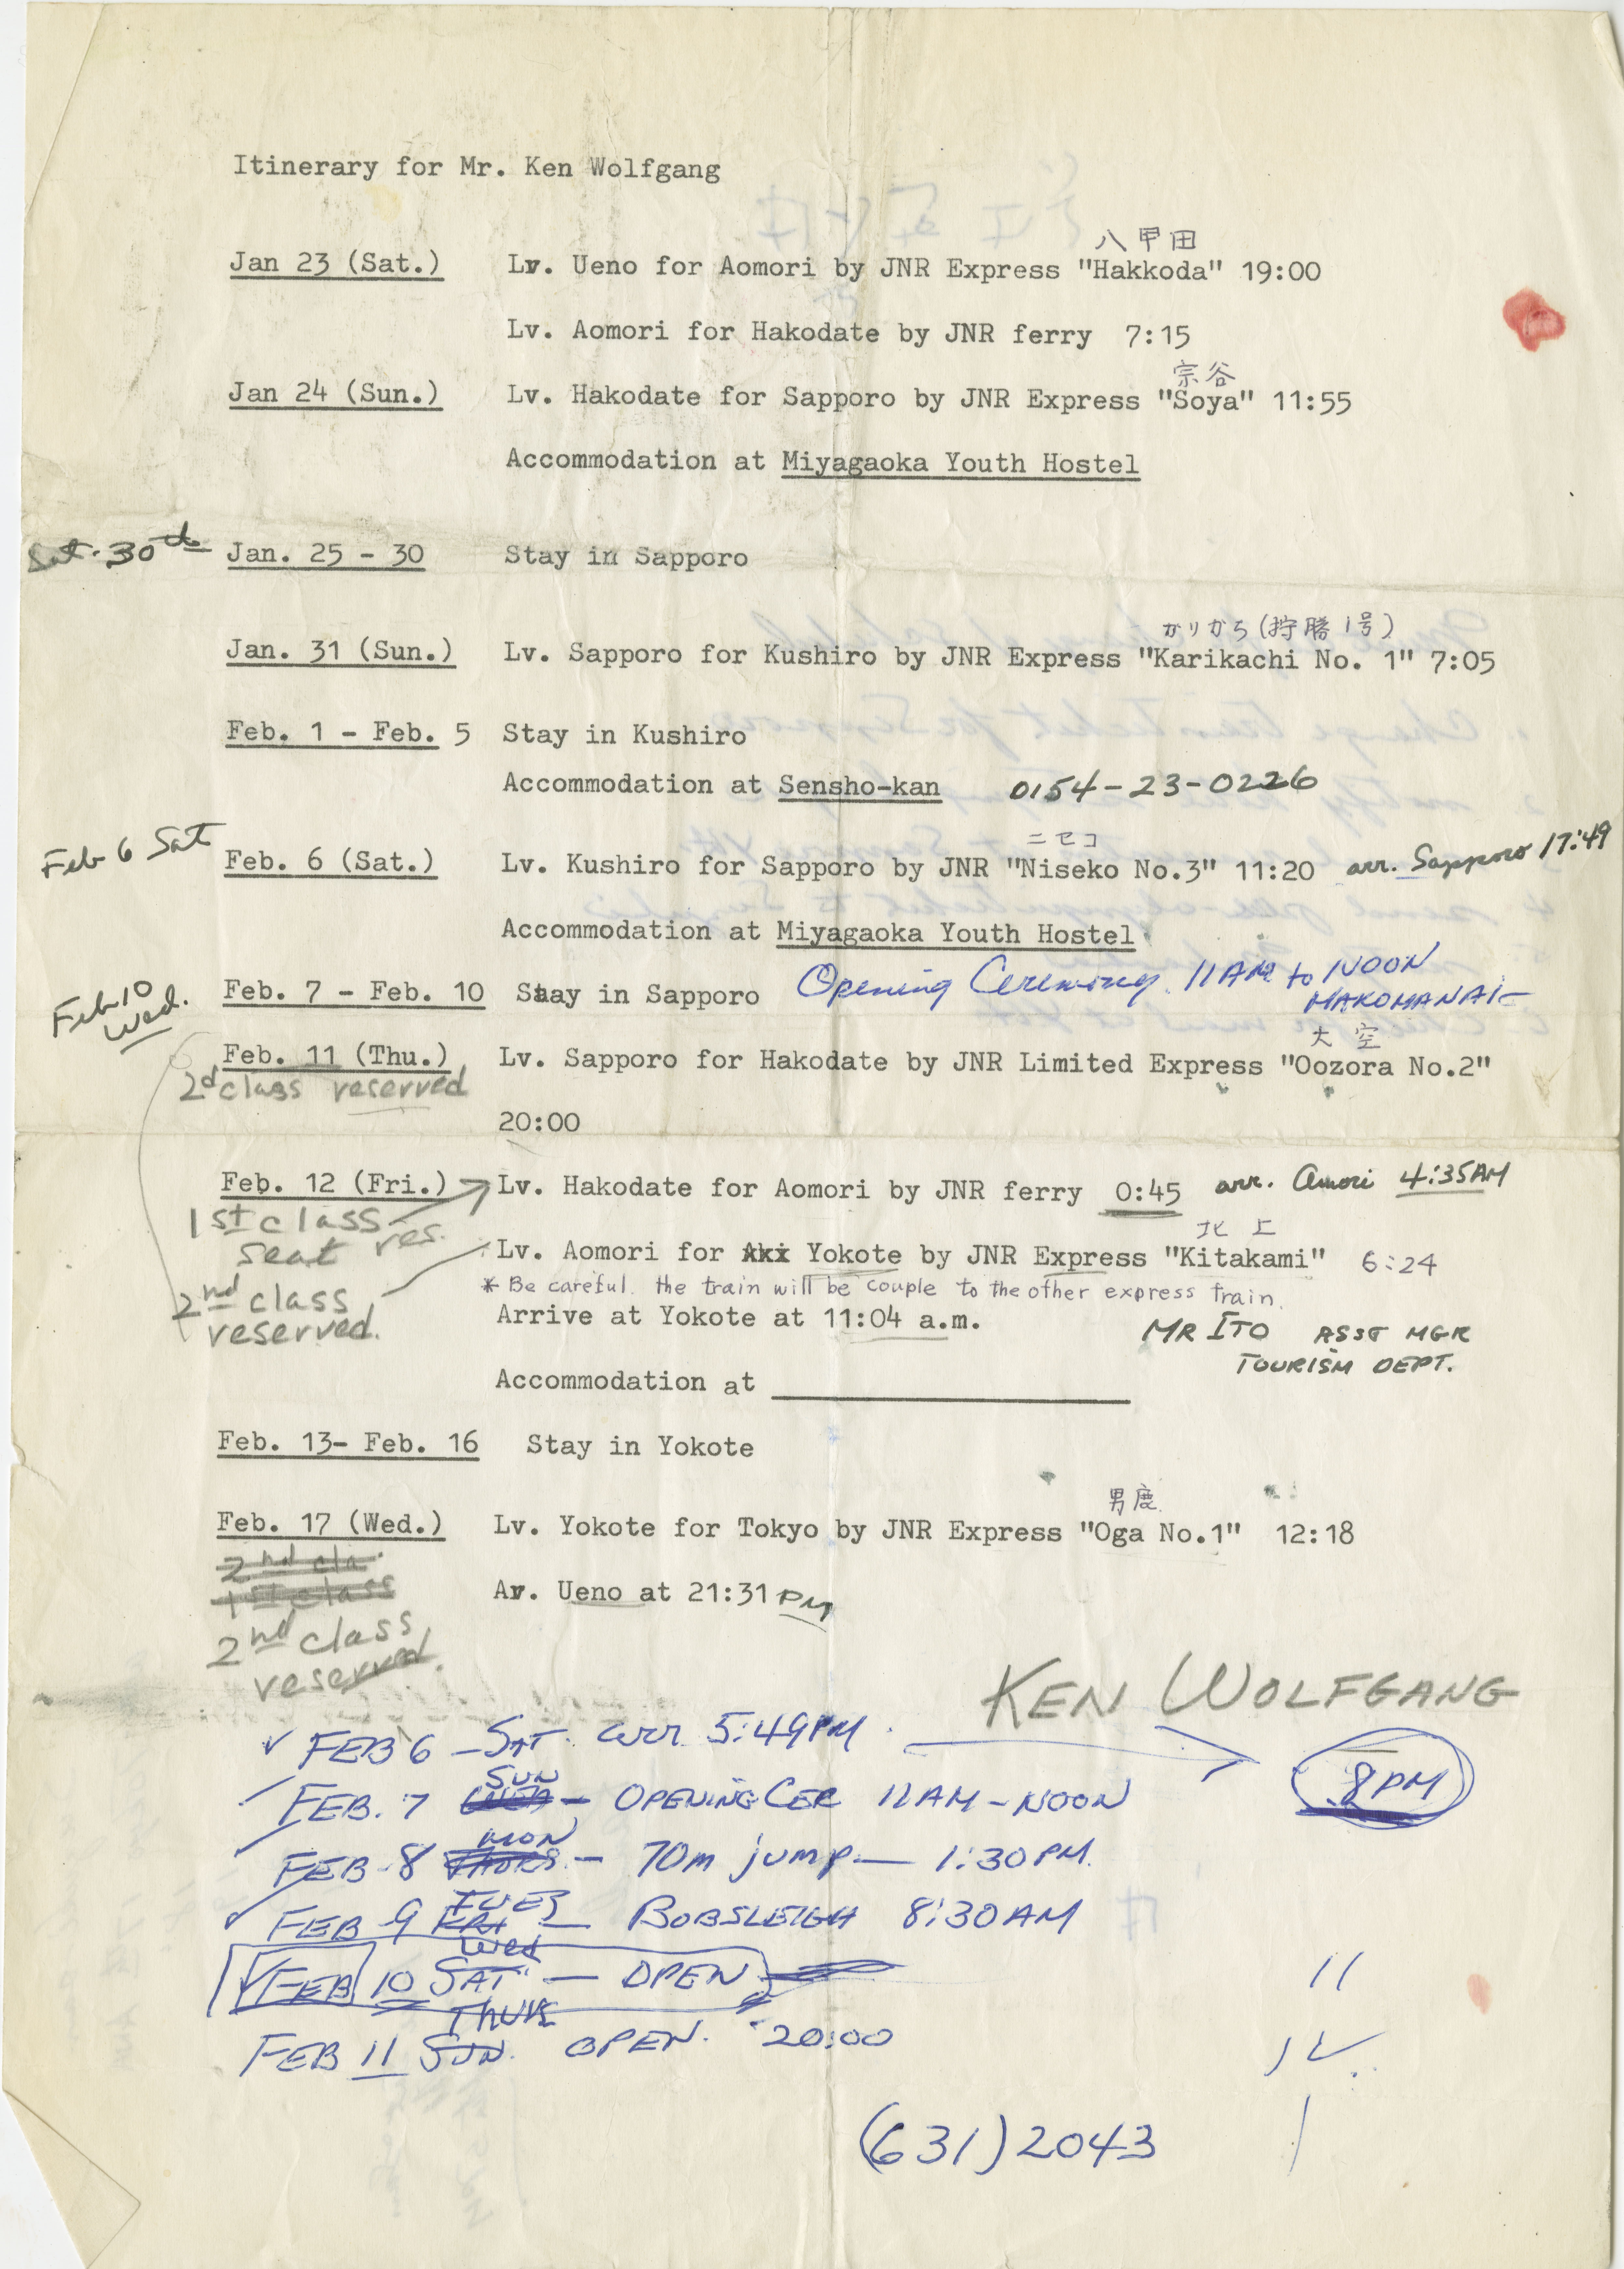 Itinerary for Mr. Ken Wolfgang
八甲田
Jan 23 (Sat.) Lv. Ueno for Aomori by JNR Express "Hakkoda" 19:00
Lv. Aomori for Hakodate by JNR ferry 7:15
宗谷
Jan 24 (Sun.) Lv. Hakodate for Sapporo by JNR Express "Soya" 11:55
Accommodation at Miyagaoka Youth Hostel
Sat. 30th Jan. 25 - 30 Stay in Sapporo
かりかち (狩勝 1号)
Jan. 31 (Sun.) Lv. Sapporo for Kushiro by JNR Express "Karikachi No. 1" 7:05
Feb. 1 - Feb. 5 Stay in Kushiro
Accommodation at Sensho-kan 0154-23-0226
ニセコ
Feb 6 Sat Feb. 6 (Sat.) Lv. Kushiro for Sapporo by JNR "Niseko No.3" 11:20 arr. Sapporo 17:49
Accommodation at Miyagaoka Youth Hostel
Feb 10 Wed. Feb. 7 - Feb. 10 Staay in Sapporo Opening Ceremony 11AM to NOON
MAKOMANAI
大空
Feb. 11 (Thu.) Lv. Sapporo for Hakodate by JNR Limited Express "Oozora No.2"
2d class reserved
20:00
Feb. 12 (Fri.) Lv. Hakodate for Aomori by JNR ferry 0:45 arr. Amori 4:35AM
1st class seat res.
北上
Lv. Aomori for Aki Yokote by JNR Express "Kitakami" 6:24
* Be careful. the train will be couple to the other express train.
2nd class reserved.
Arrive at Yokote at 11:04 a.m.
MR ITO ASST MGR
TOURISM DEPT.
Accommodation at
Feb. 13- Feb. 16 Stay in Yokote
男鹿
Feb. 17 (Wed.) Lv. Yokote for Tokyo by JNR Express "Oga No.1" 12:18
2nd cla
1st class
Ar. Ueno at 21:31 PM
2nd class
reserved.
KEN WOLFGANG
FEB 6 - SAT. arr 5:49PM. 8PM
SUN
FEB. 7 WED - OPENING CER 11AM - NOON
MON
FEB. 8 THURS. - 70m jump - 1:30PM.
TUES
FEB 9 FRI - BOBSLEIGH 8:30AM
Wed
FEB 10 SAT - OPEN
THUR
FEB 11 SUN. OPEN. 20:00
11
(631) 2043